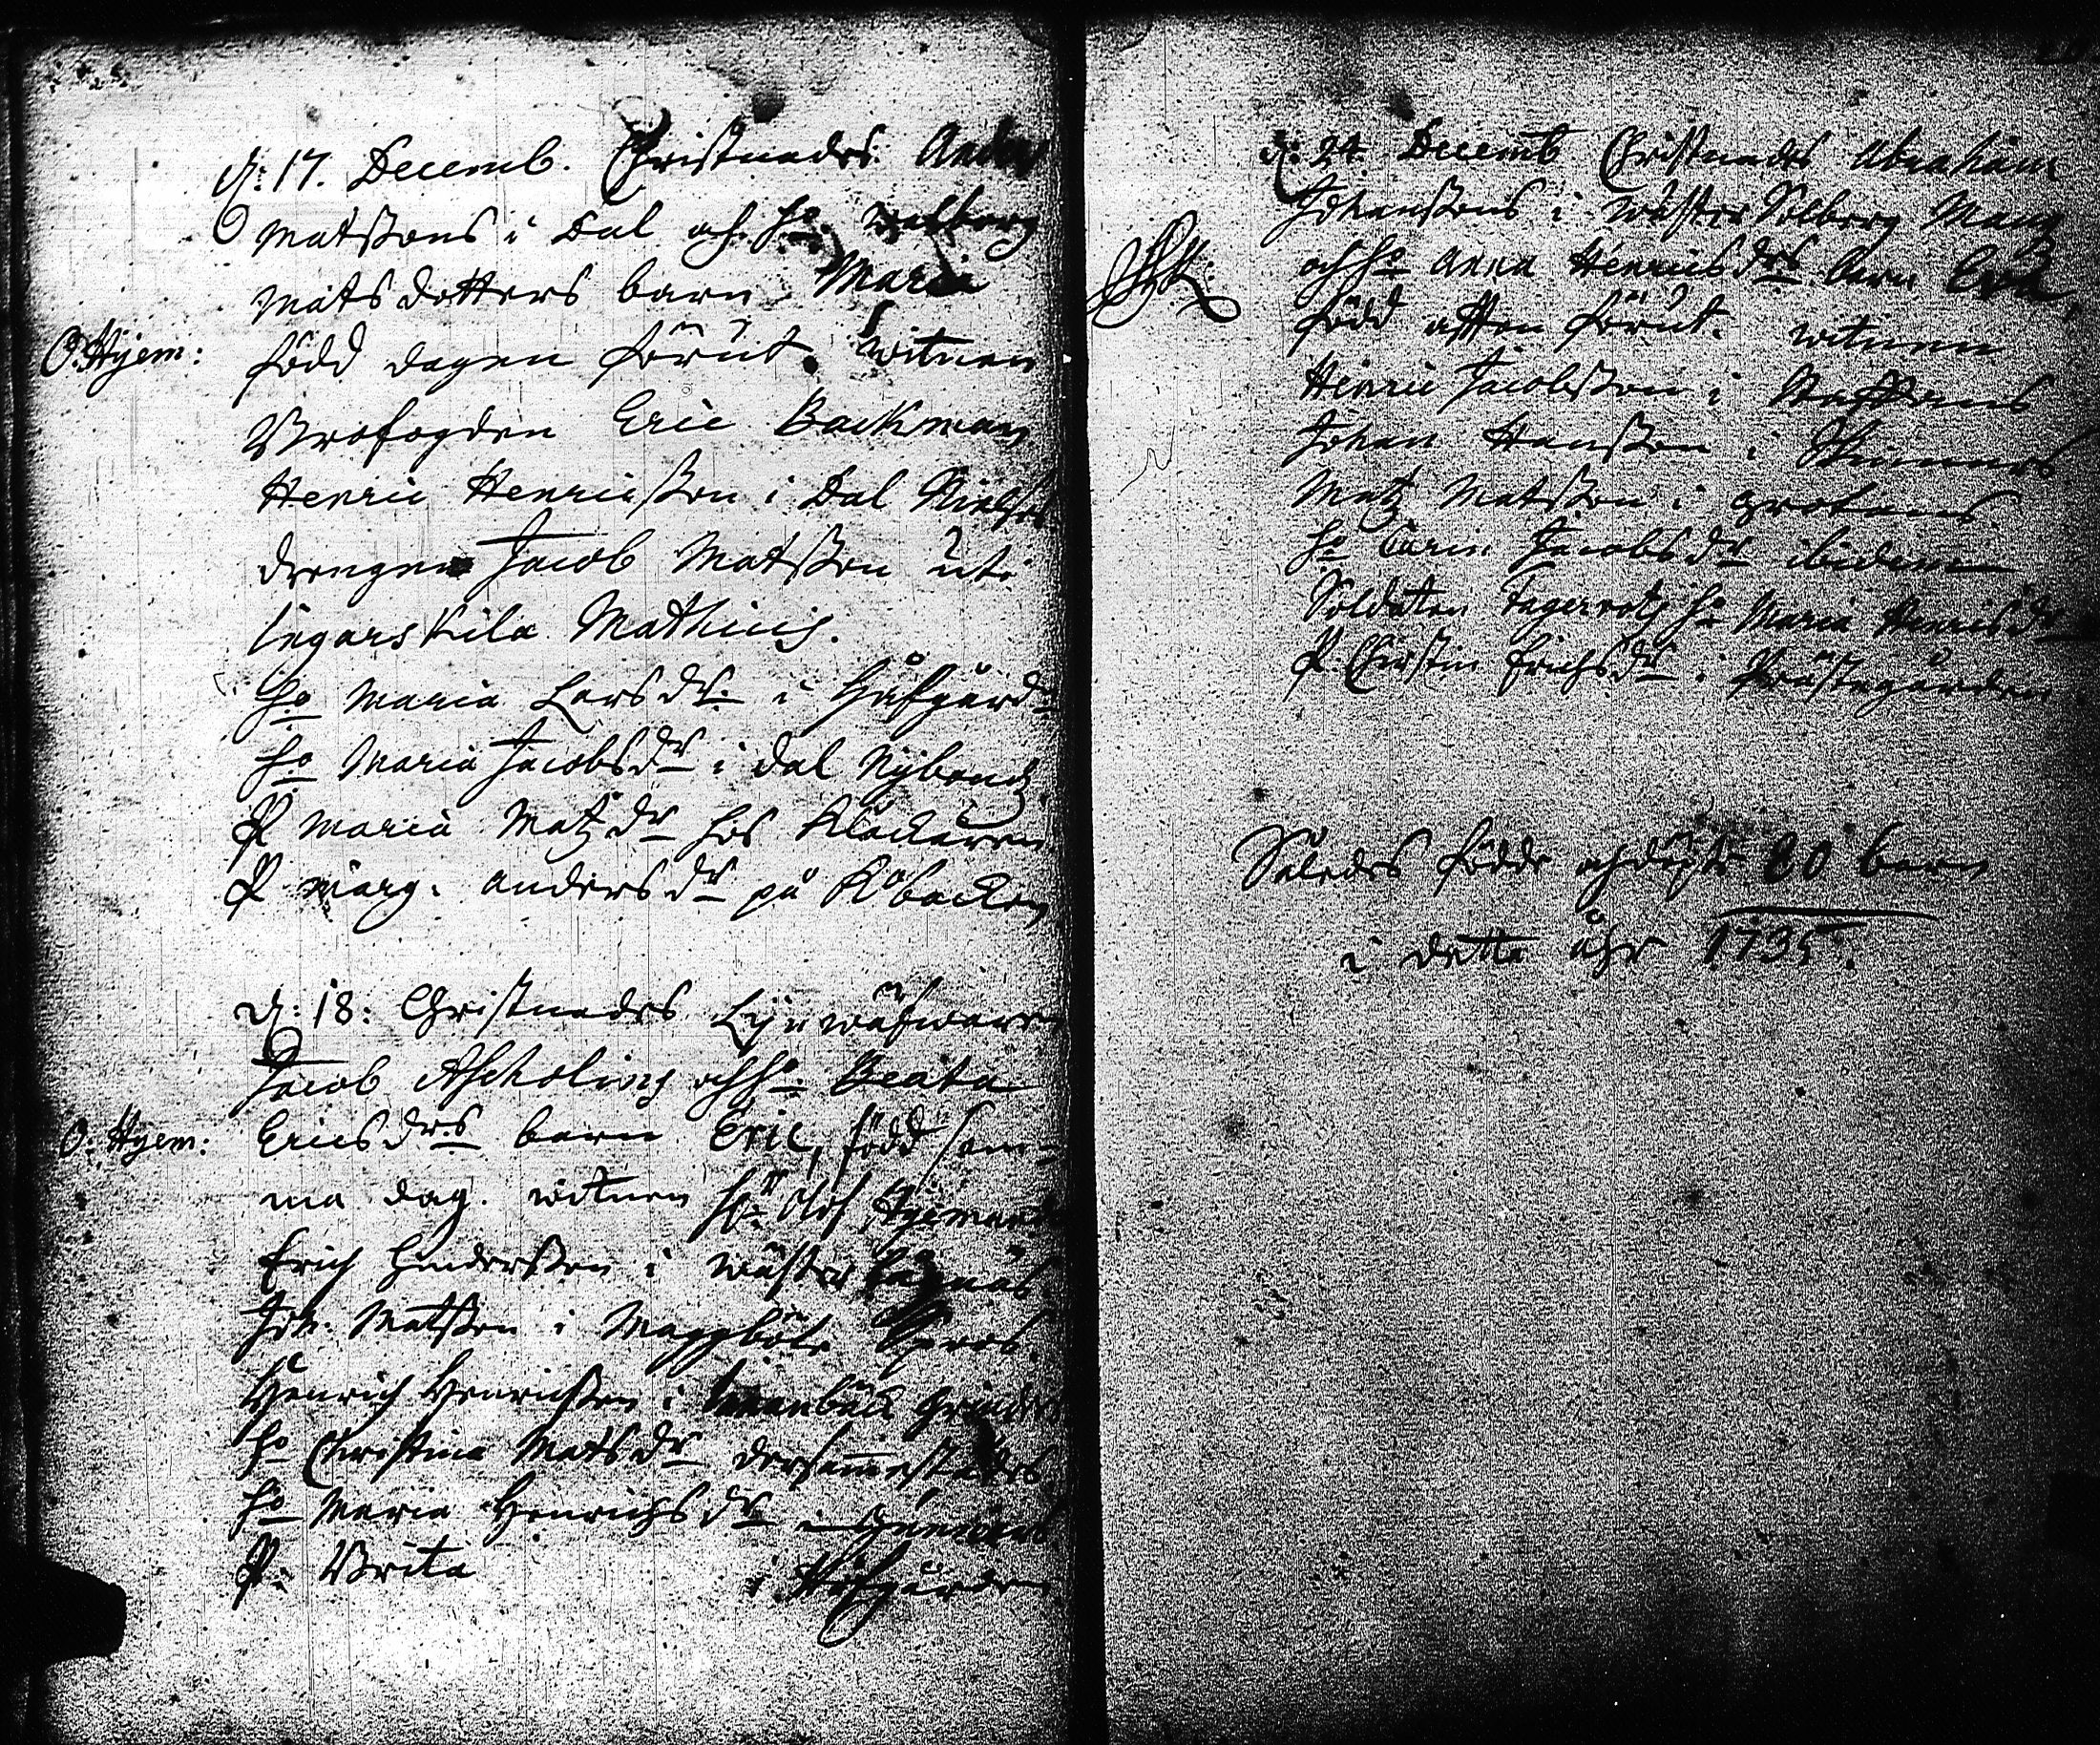 d: 17. Decemb. Christnades Anders
Matssons i Dal och ho. Walborg
Matsdotters barn Maria
O. Hyem:
född dagen förut. witnen
Brofogden Eric Backman
Henric Henricsson i Dal Nielses
drengen Jacob Matsson uti
Ingarskila Mathiis.
ho Maria Larsdr. i Håfgård
ho Maria Jacobsdr i Dal Nybond
P Maria Matzdr hos Klockaren
P marg. Andersdr på Kåbacken
d: 18: Christnades Lijnwäfwaren
Jacob Ascholins och ho. Beata
O. Hyem:
Ericsdrs barn Eric, född sam-
ma dag. witnen hr. Olof
Erich Hindersson i Wäster
Joh. Matsson i Maggböle
Henrich Henrichsson i
ho Christina Matsdr dersammestädes
ho Maria Henrichsdr i
P. Brita i Håfgården
d: 24 Decemb Christnades Abraham
Johanssons i Wäster Solberg Mans
och ho Anna Henricsdrs barn Eva,
född afton förut. witnen
Henric Jacobsson i Staffans
Johan Hansson i
Matz Matsson i Grotens
ho Carin Jacobsdr ibidem
Soldaten Fagerrots ho Maria Henricsdr
P. Christin Erichsdr i Prästegården
Således födde och döpte 80 barn
i detta åhr 1735.